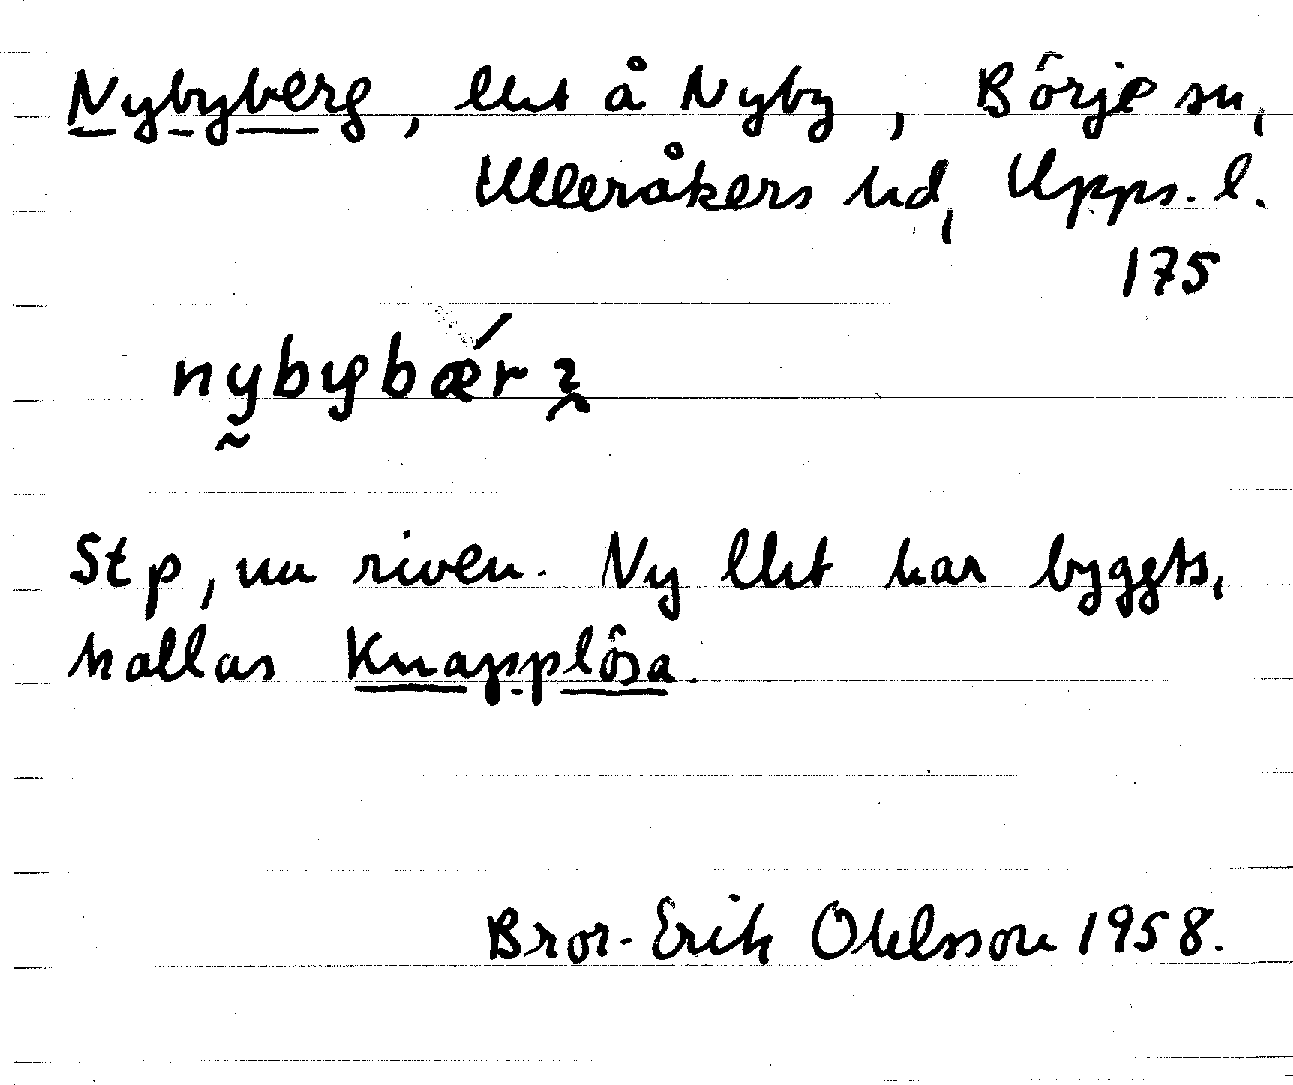 Nybyberg, lht å Nyby, Börje sn,
Ulleråkers hd, Upps. l.
175
Stp, nu riven. Ny lht har byggts,
kallas Knapplösa.
Bror-Erik Ohlsson 1958.